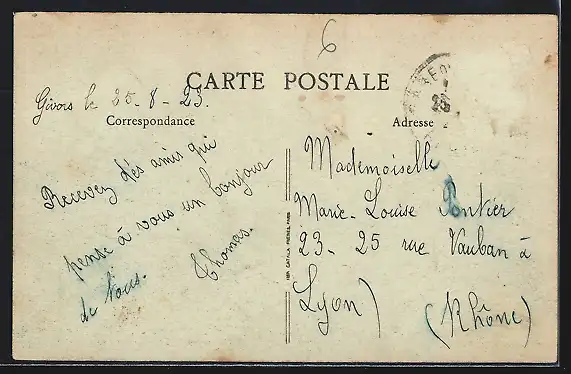 6
CARTE POSTALE
Givors le 25-8-23.
Correspondance
Adresse
Recevez dès amis qui
pense à vous un bonjour
de Nous.
Thomas.
IMP. CATALA FRÈRES, PARIS
Mademoiselle
Marie-Louise Pontier
23-25 rue Vauban à
Lyon)
(Rhône)